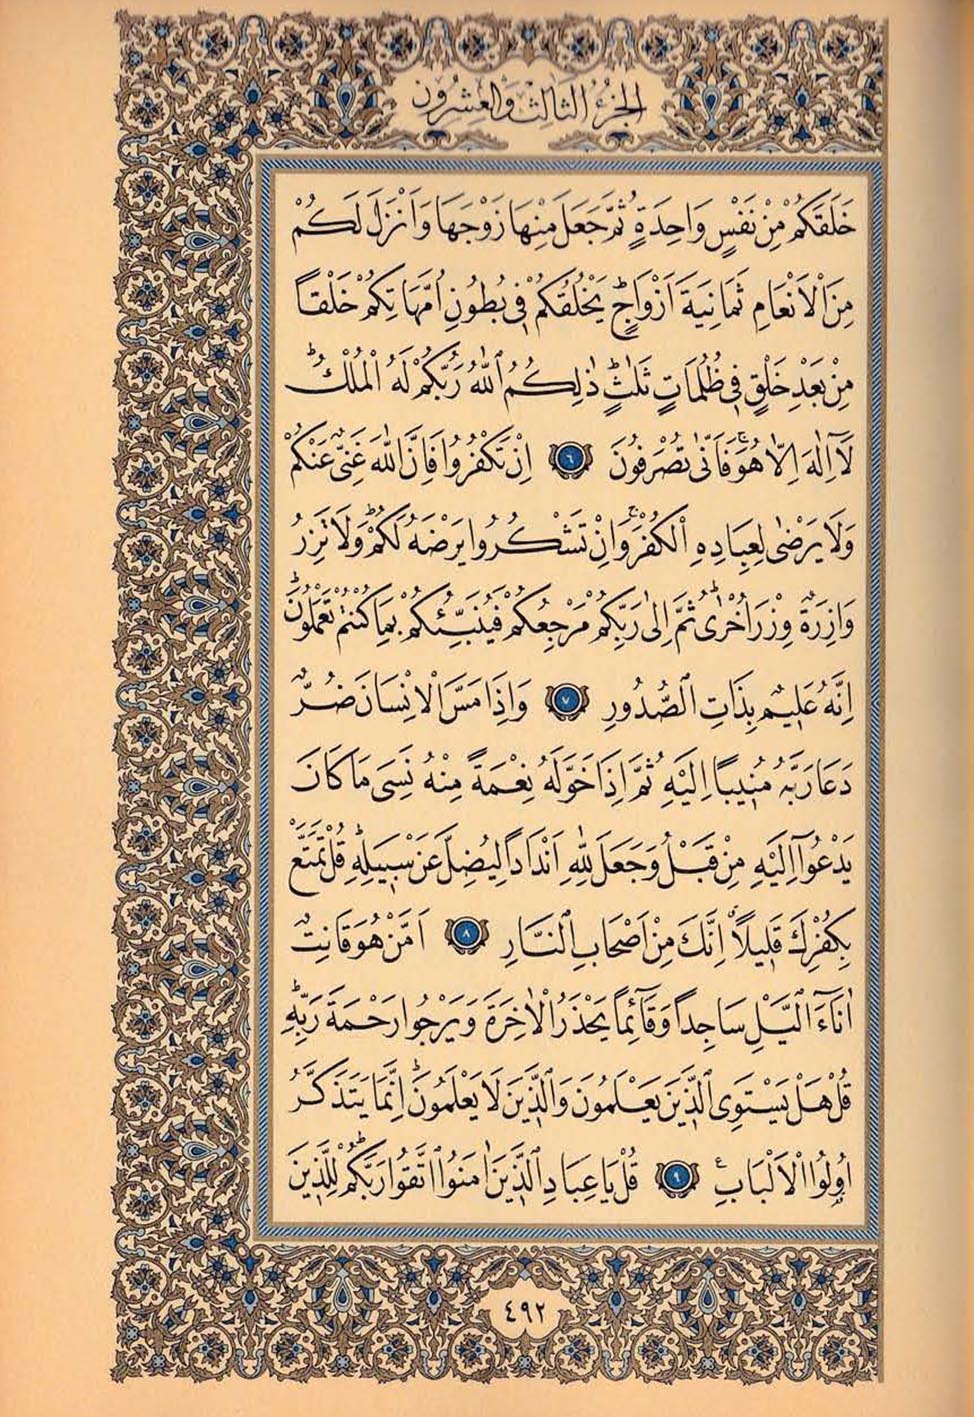 الجزء الثالث والعشرون
خَلَقَكُمْ مِنْ نَفْسٍ وَاحِدَةٍ ثُمَّ جَعَلَ مِنْهَا زَوْجَهَا وَاَنْزَلَ لَكُمْ
مِنَ الْاَنْعَامِ ثَمَانِيَةَ اَزْوَاجٍۜ يَخْلُقُكُمْ ف۪ي بُطُونِ اُمَّهَاتِكُمْ خَلْقاً
مِنْ بَعْدِ خَلْقٍ ف۪ي ظُلُمَاتٍ ثَلٰثٍۜ ذٰلِكُمُ اللّٰهُ رَبُّكُمْ لَهُ الْمُلْكُۜ
لَٓا اِلٰهَ اِلَّا هُوَۚ فَاَنّٰى تُصْرَفُونَ ﴿٦﴾ اِنْ تَكْفُرُوا فَاِنَّ اللّٰهَ غَنِيٌّ عَنْكُمْ
وَلَا يَرْضٰى لِعِبَادِهِ الْكُفْرَۚ وَاِنْ تَشْكُرُوا يَرْضَهُ لَكُمْۜ وَلَا تَزِرُ
وَازِرَةٌ وِزْرَ اُخْرٰىۜ ثُمَّ اِلٰى رَبِّكُمْ مَرْجِعُكُمْ فَيُنَبِّئُكُمْ بِمَا كُنْتُمْ تَعْمَلُونَۜ
اِنَّهُ عَل۪يمٌ بِذَاتِ الصُّدُورِ ﴿٧﴾ وَاِذَا مَسَّ الْاِنْسَانَ ضُرٌّ
دَعَا رَبَّهُ مُن۪يباً اِلَيْهِ ثُمَّ اِذَا خَوَّلَهُ نِعْمَةً مِنْهُ نَسِيَ مَا كَانَ
يَدْعُٓوا اِلَيْهِ مِنْ قَبْلُ وَجَعَلَ لِلّٰهِ اَنْدَاداً لِيُضِلَّ عَنْ سَب۪يلِه۪ۜ قُلْ تَمَتَّعْ
بِكُفْرِكَ قَل۪يلاًۗ اِنَّكَ مِنْ اَصْحَابِ النَّارِ ﴿٨﴾ اَمَّنْ هُوَ قَانِتٌ
اٰنَٓاءَ الَّيْلِ سَاجِداً وَقَٓائِماً يَحْذَرُ الْاٰخِرَةَ وَيَرْجُوا رَحْمَةَ رَبِّه۪ۜ
قُلْ هَلْ يَسْتَوِي الَّذ۪ينَ يَعْلَمُونَ وَالَّذ۪ينَ لَا يَعْلَمُونَۜ اِنَّمَا يَتَذَكَّرُ
اُو۬لُوا الْاَلْبَابِ۟ ﴿٩﴾ قُلْ يَا عِبَادِ الَّذ۪ينَ اٰمَنُوا اتَّقُوا رَبَّكُمْۜ لِلَّذ۪ينَ
٤٩٢